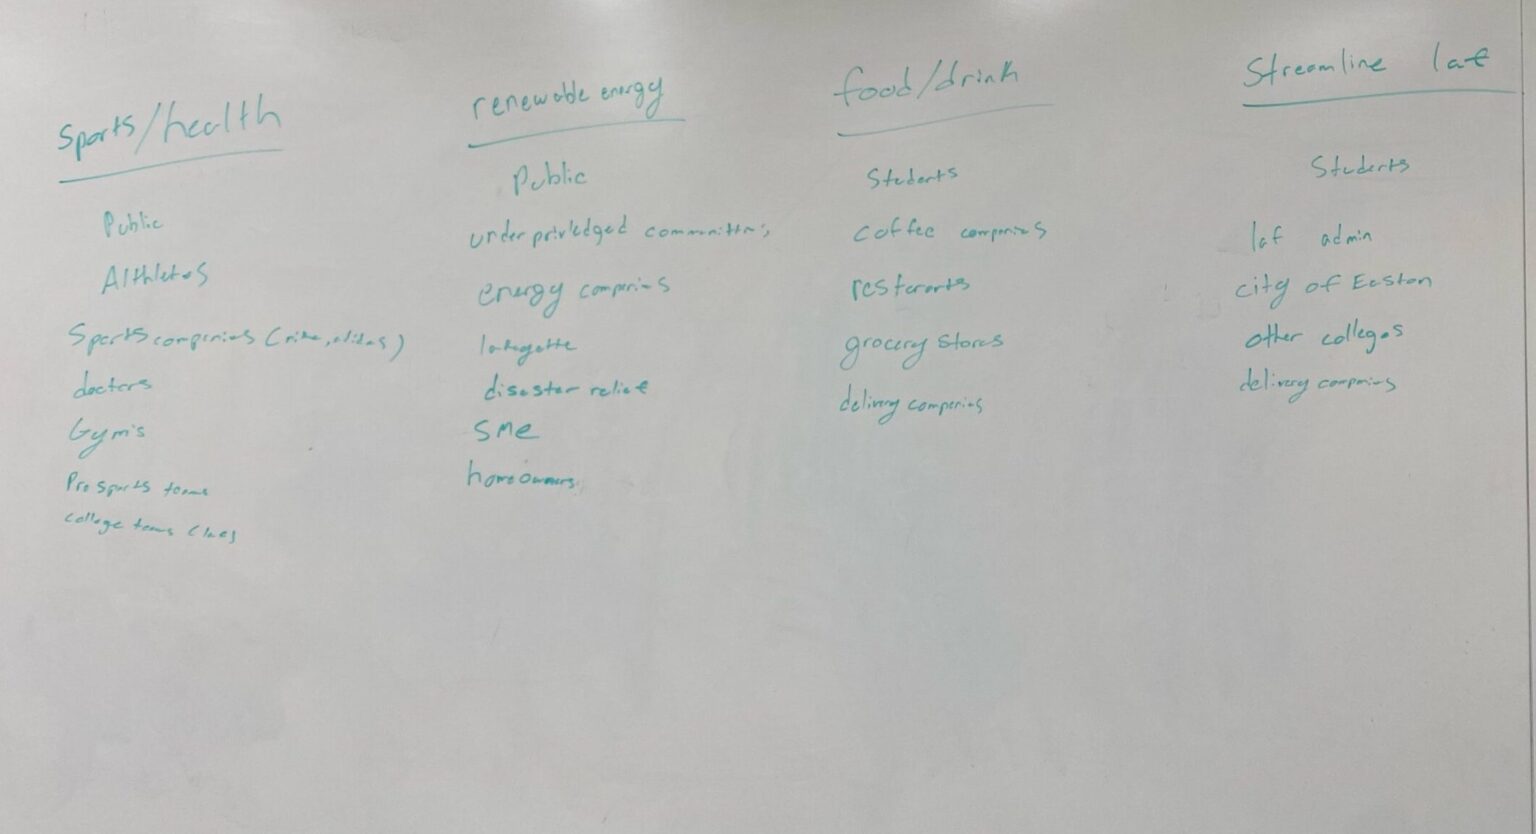 Sports/health
Public
Althletes
Sports companies (nike, adidas)
doctors
Gym's
Pro sports teams
college teams (laf)
renewable energy
Public
underpriviledged communities
energy companies
lafayette
disaster relief
SME
homeowners
food/drink
Students
coffee companies
resterants
grocery stores
delivery companies
Streamline laf
Students
laf admin
city of Easton
other colleges
delivery companies